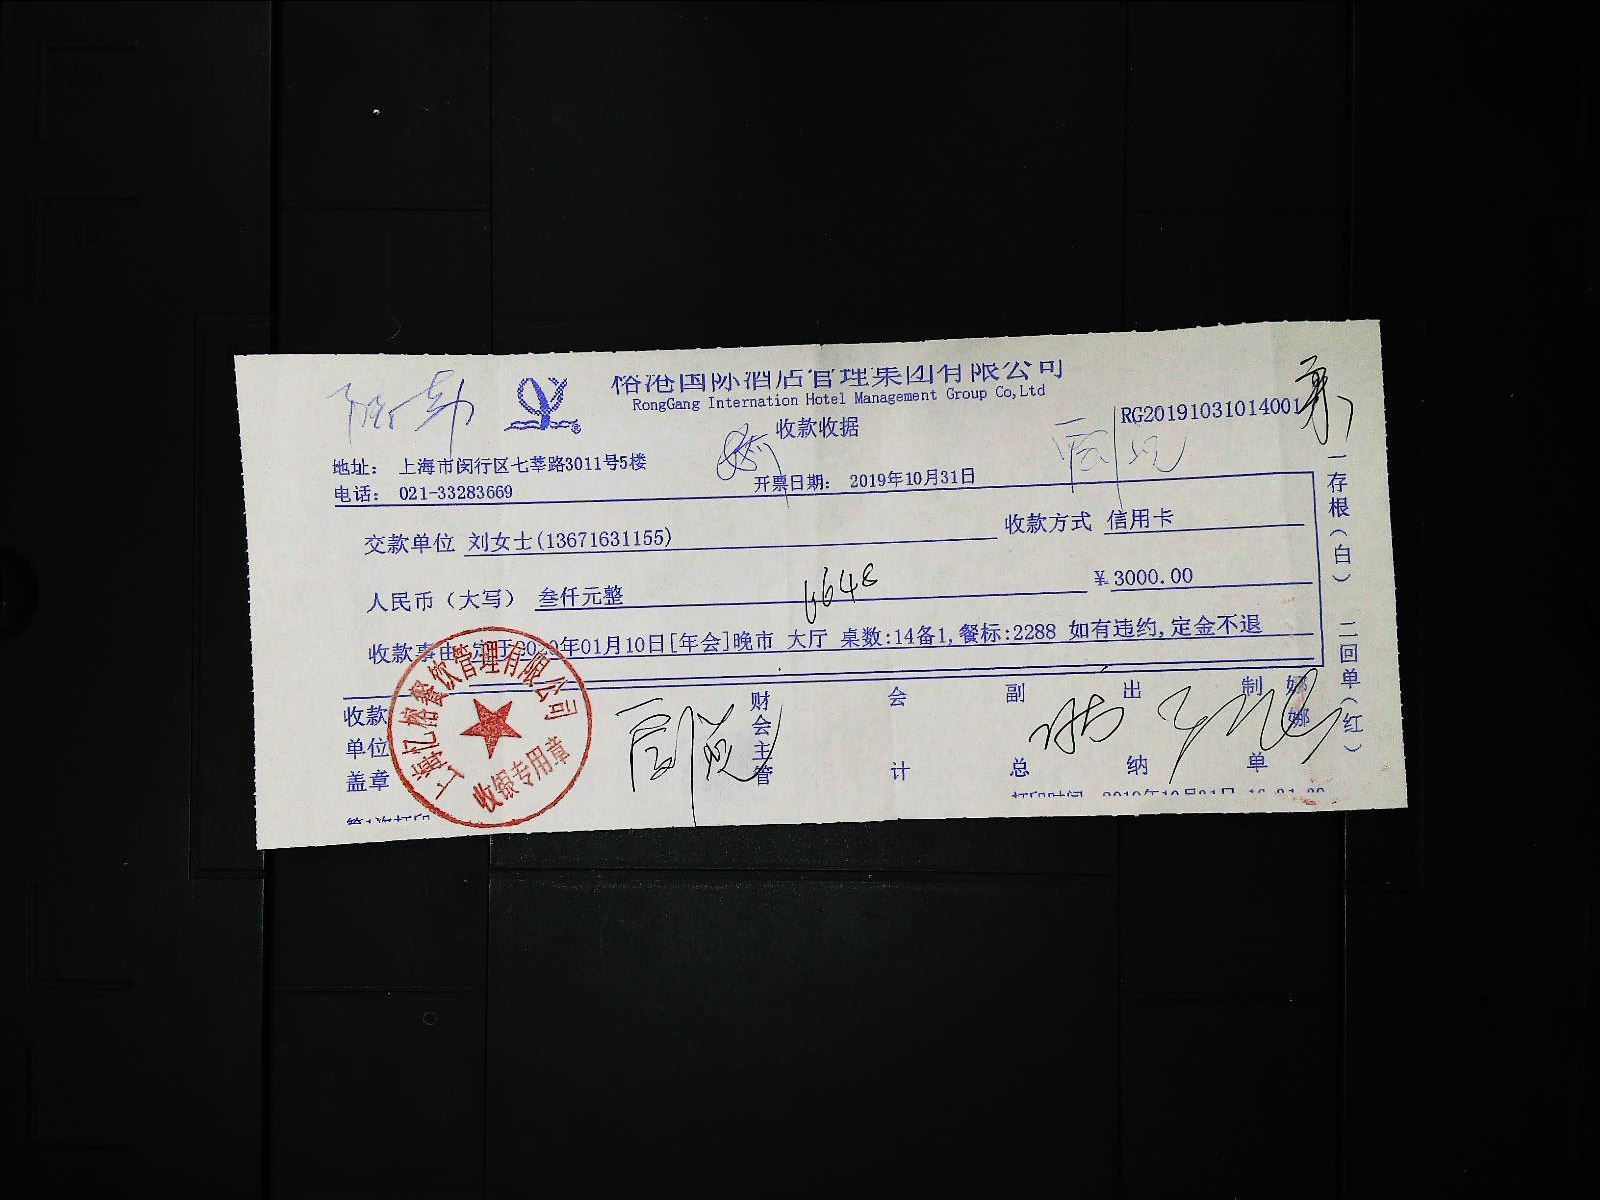 榕港国际酒店管理集团有限公司
RongGang Internation Hotel Management Group Co,Ltd
收款收据
RG20191031014001
地址: 上海市闵行区七莘路3011号5楼
电话: 021-33283669
开票日期: 2019年10月31日
交款单位 刘女士(13671631155)
收款方式 信用卡
人民币(大写) 叁仟元整
6648
¥3000.00
收款事由 定于2020年01月10日[年会]晚市 大厅 桌数:14备1,餐标:2288 如有违约,定金不退
一存根(白) 二回单(红)
收款单位盖章
财会主管
会计
副总
出纳
制单 娜娜
上海亿榕餐饮管理有限公司
收银专用章
第1次打印
打印时间 2019年10月31日